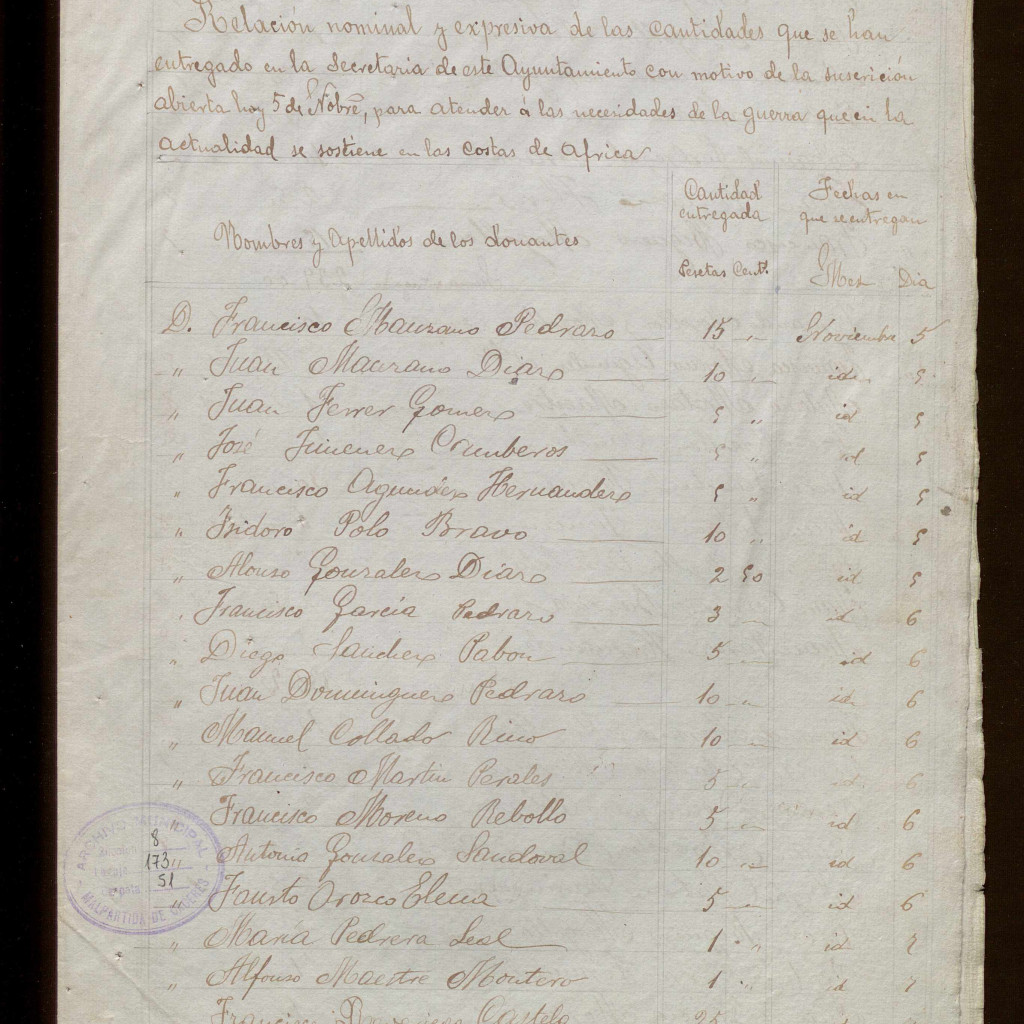 Relación nominal y expresiva de las cantidades que se han
entregado en la Secretaria de este Ayuntamiento con motivo de la suscrición
abierta hoy 5 de Nobre, para atender á las necesidades de la guerra que en la
actualidad se sostiene en las costas de Africa
Nombres y Apellidos de los donantes
Cantidad entregada
Pesetas Cent.
Fechas en que se entregan
Mes Dia
D. Francisco Manzano Pedrazo 15 " Noviembre 5
" Juan Manzano Diaz 10 " id 5
" Juan Ferrer Gomez 5 " id 5
" José Jimenez Cumberos 5 " id 5
" Francisco Hernandez 5 " id 5
" Isidoro Polo Bravo 10 " id 5
" Alonso Gonzalez Diaz 2 50 id 5
" Francisco García Pedrazo 3 " id 6
" Diego Sanchez Pabon 5 " id 6
" Juan Dominguez Pedrazo 10 " id 6
" Manuel Collado Rino 10 " id 6
" Francisco Martin Perales 5 " id 6
Francisco Moreno Rebollo 5 " id 6
Antonio Gonzalez Sandoval 10 " id 6
" Fausto Orozco Elena 5 " id 6
" María Pedrera Leal 1 " id 7
" Alfonso Maestre Montero 1 " id 7
Francisco Castela 25
ARCHIVO MUNICIPAL
8
173
51
MALPARTIDA DE CÁCERES